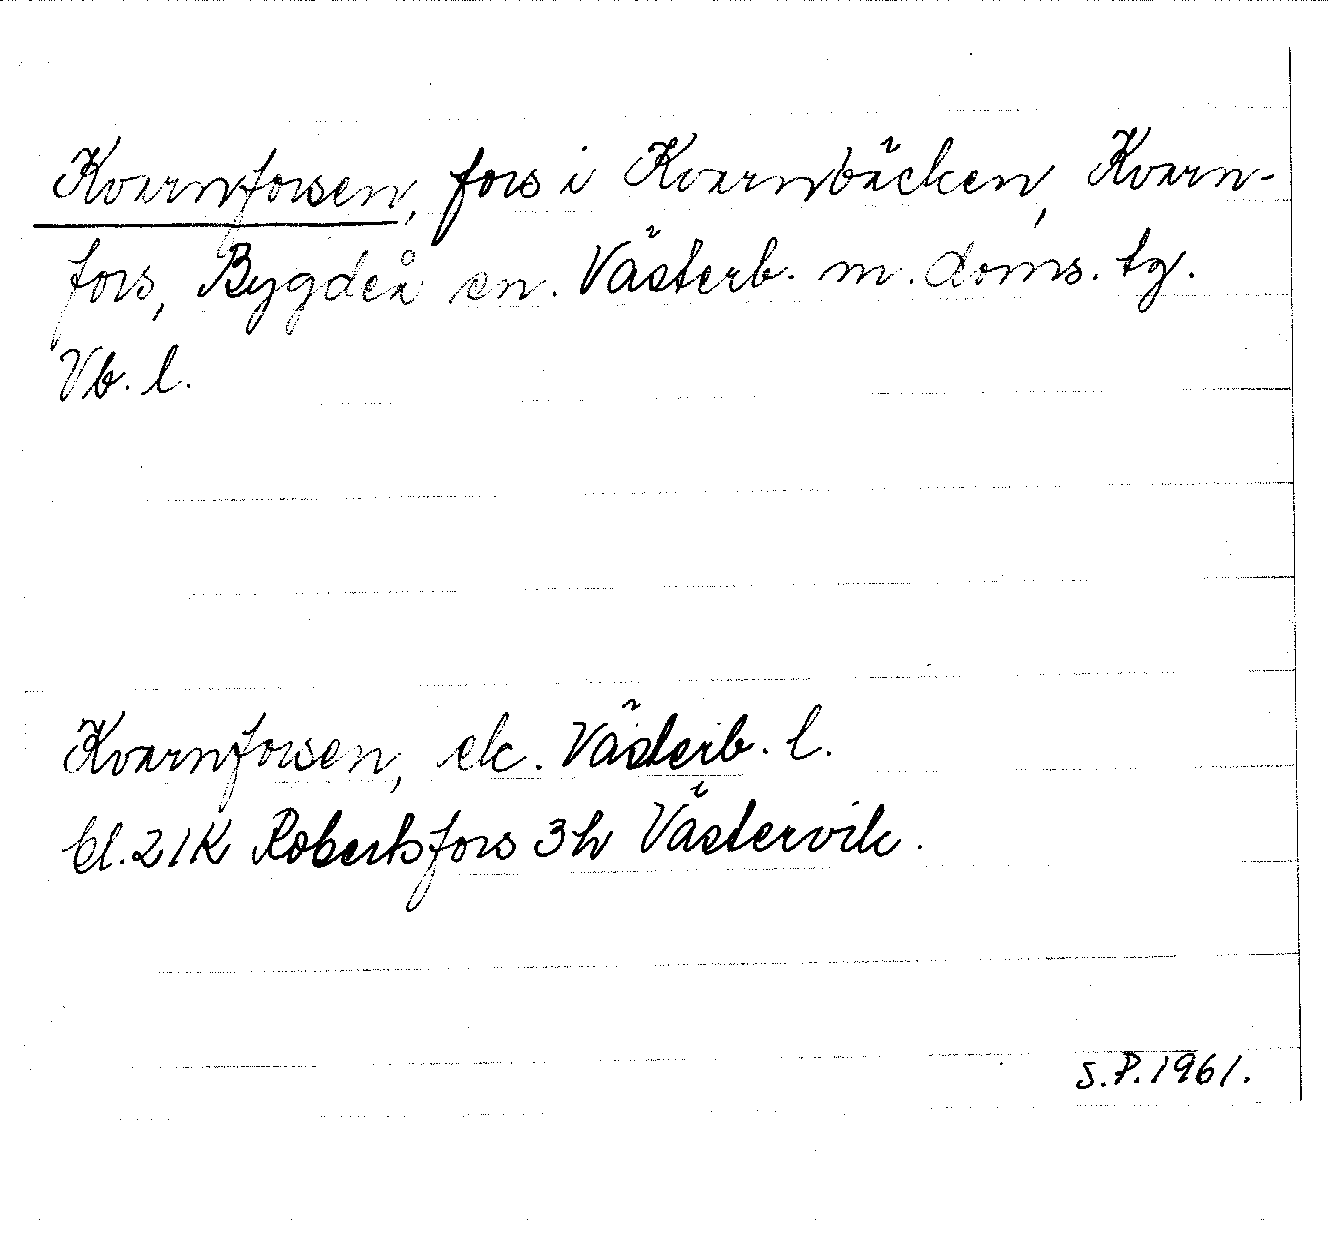 Kvarnforsen, fors i Kvarnbäcken, Kvarn-
fors, Bygdeå sn. Västerb. m. doms. tg.
Vb. l.
Kvarnforsen, ek. Västerb. l.
bl. 21K Robertsfors 3h Västervik.
S.P. 1961.